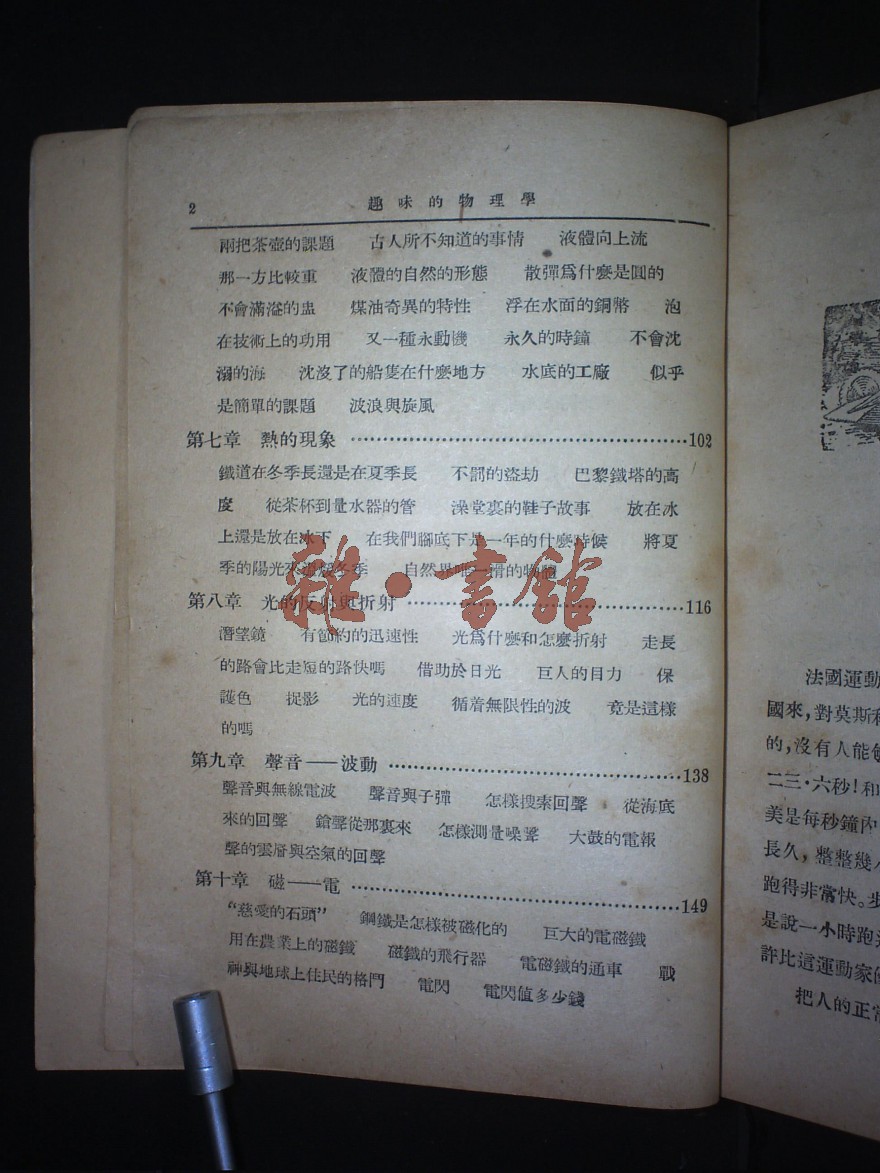 2 趣味的物理學
兩把茶壺的課題 古人所不知道的事情 液體向上流
那一方比較重 液體的自然的形態 散彈爲什麽是圓的
不會滿溢的盅 煤油奇異的特性 浮在水面的銅幣 泡
在技術上的功用 又一種永動機 永久的時鐘 不會沈
溺的海 沈沒了的船隻在什麽地方 水底的工廠 似乎
是簡單的課題 波浪與旋風
第七章 熱的現象 ……………………………………102
鐵道在冬季長還是在夏季長 不罰的盜劫 巴黎鐵塔的高
度 從茶杯到量水器的管 澡堂裏的鞋子故事 放在冰
上還是放在冰下 在我們腳底下是一年的什麽時候 將夏
季的陽光來溫暖冬季 自然界唯一滑的物體
第八章 光的反射與折射 ……………………………116
潛望鏡 有節約的迅速性 光爲什麽和怎麽折射 走長
的路會比走短的路快嗎 借助於日光 巨人的目力 保
護色 捉影 光的速度 循着無限性的波 竟是這樣
的嗎
第九章 聲音——波動 ………………………………138
聲音與無線電波 聲音與子彈 怎樣搜索回聲 從海底
來的回聲 鎗聲從那裏來 怎樣測量噪聲 大鼓的電報
聲的雲層與空氣的回聲
第十章 磁——電 ……………………………………149
“慈愛的石頭” 鋼鐵是怎樣被磁化的 巨大的電磁鐵
用在農業上的磁鐵 磁鐵的飛行器 電磁鐵的通車 戰
神與地球上住民的格鬥 電閃 電閃值多少錢
雜·書館
法國運動
國來,對莫斯科
的,沒有人能
二三·六秒!和
美是每秒鐘內
長久,整整幾
跑得非常快。步
是說一小時跑
許比這運動家
把人的正常